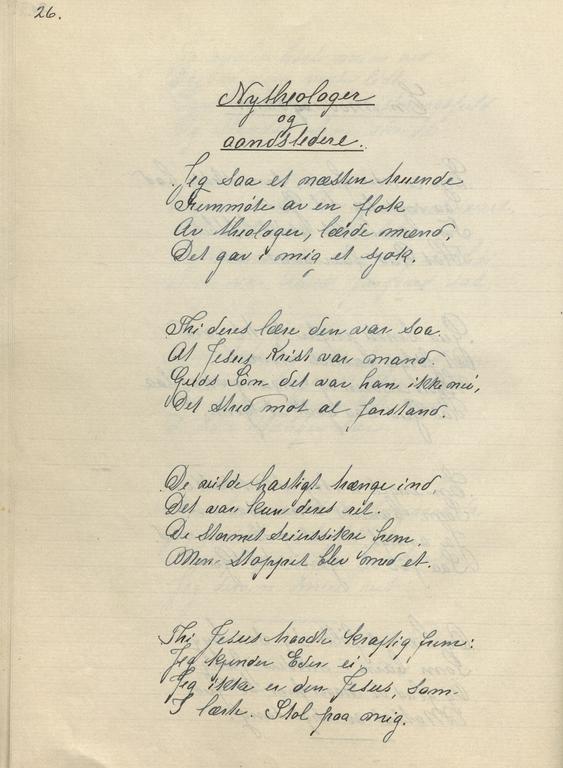 26.
Nytheologer
og
aandsledere.
Jeg saa et næsten truende
Fremmøte av en flok
Av theologer, lærde mænd.
Det gav i mig et sjok.
Thi deres lære den var saa.
At Jesus Krist var mand.
Guds Søn det var han ikke nei,
Det stred mot al forstand.
De vilde hastigt trænge ind.
Det var kun deres vit.
De stormet seierssikre frem.
Men stoppet blev med et.
Thi Jesus traadte kraftig frem:
Jeg kjender Eder ei.
Jeg ikke er den Jesus, som
I lærte. Stol paa mig.